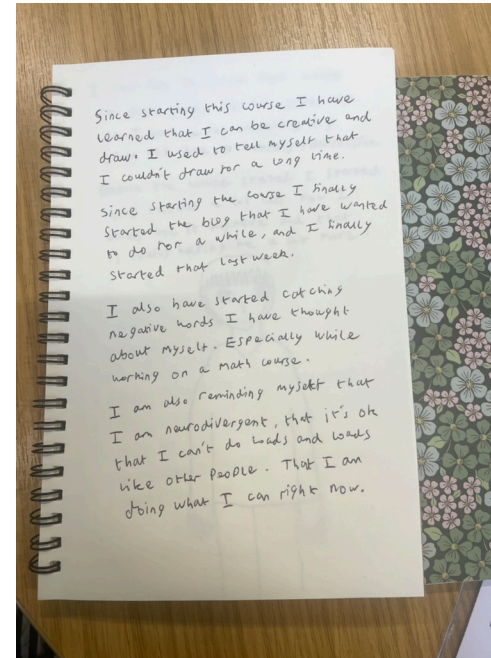 Since starting this course I have
learned that I can be creative and
draw. I used to tell myself that
I couldn't draw for a long time.
Since starting the course I finally
started the blog that I have wanted
to do for a while, and I finally
started that last week.
I also have started catching
negative words I have thought
about myself. Especially while
working on a math course.
I am also reminding myself that
I am neurodivergent, that it's ok
that I can't do loads and loads
like other people. That I am
doing what I can right now.